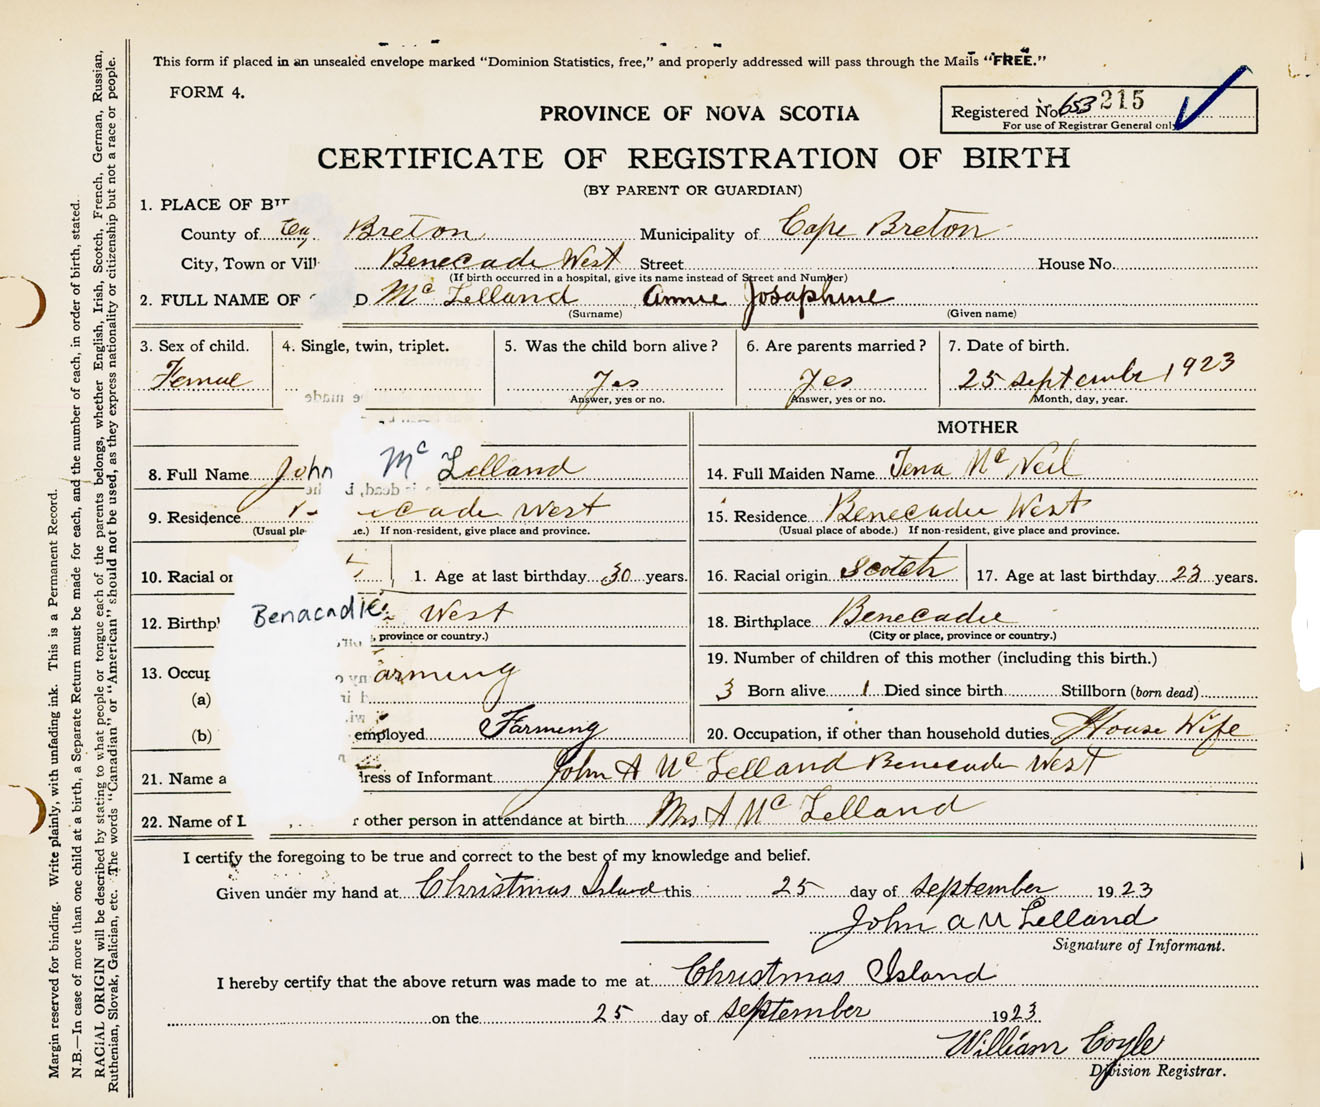 This form if placed in an unsealed envelope marked "Dominion Statistics, free," and properly addressed will pass through the Mails "FREE."
FORM 4.
Registered No. 653 215
For use of Registrar General only
PROVINCE OF NOVA SCOTIA
CERTIFICATE OF REGISTRATION OF BIRTH
(BY PARENT OR GUARDIAN)
1. PLACE OF
County of Breton Municipality of Cape Breton
City, Town or Benecadie West Street House No.
(If birth occurred in a hospital, give its name instead of Street and Number)
2. FULL NAME OF D Mc Lelland Annie Josaphine
(Surname) (Given name)
3. Sex of child. 4. Single, twin, triplet. 5. Was the child born alive? 6. Are parents married? 7. Date of birth.
Femal Yes Yes 25 september 1923
Answer, yes or no. Answer, yes or no. Month, day, year.
MOTHER
8. Full Name John Mc Lelland 14. Full Maiden Name Tena Mc Neil
9. Residence West 15. Residence Benecadie West
(Usual If non-resident, give place and province. (Usual place of abode.) If non-resident, give place and province.
10. Racial 1. Age at last birthday 30 years. 16. Racial origin Scotch 17. Age at last birthday 23 years.
12. Benacadie West 18. Birthplace Benecadie
province or country.) (City or place, province or country.)
19. Number of children of this mother (including this birth.)
13. arming
(a) 3 Born alive 1 Died since birth Stillborn (born dead)
(b) employed Farming 20. Occupation, if other than household duties. House Wife
21. Name a dress of Informant John A Mc Lelland Benecade West
22. Name of r other person in attendance at birth Mrs A Mc Lelland
I certify the foregoing to be true and correct to the best of my knowledge and belief.
Given under my hand at Christmas Island this 25 day of september 1923
John A Mc Lelland
Signature of Informant.
I hereby certify that the above return was made to me at Christmas Island
on the 25 day of september 1923
William Coyle
Division Registrar.
Margin reserved for binding. Write plainly, with unfading ink. This is a Permanent Record.
N.B.—In case of more than one child at a birth, a Separate Return must be made for each, and the number of each, in order of birth, stated.
RACIAL ORIGIN will be described by stating to what people or tongue each of the parents belongs, whether English, Irish, Scotch, French, German, Russian,
Ruthenian, Slovak, Galician, etc. The words "Canadian" or "American" should not be used, as they express nationality or citizenship but not a race or people.